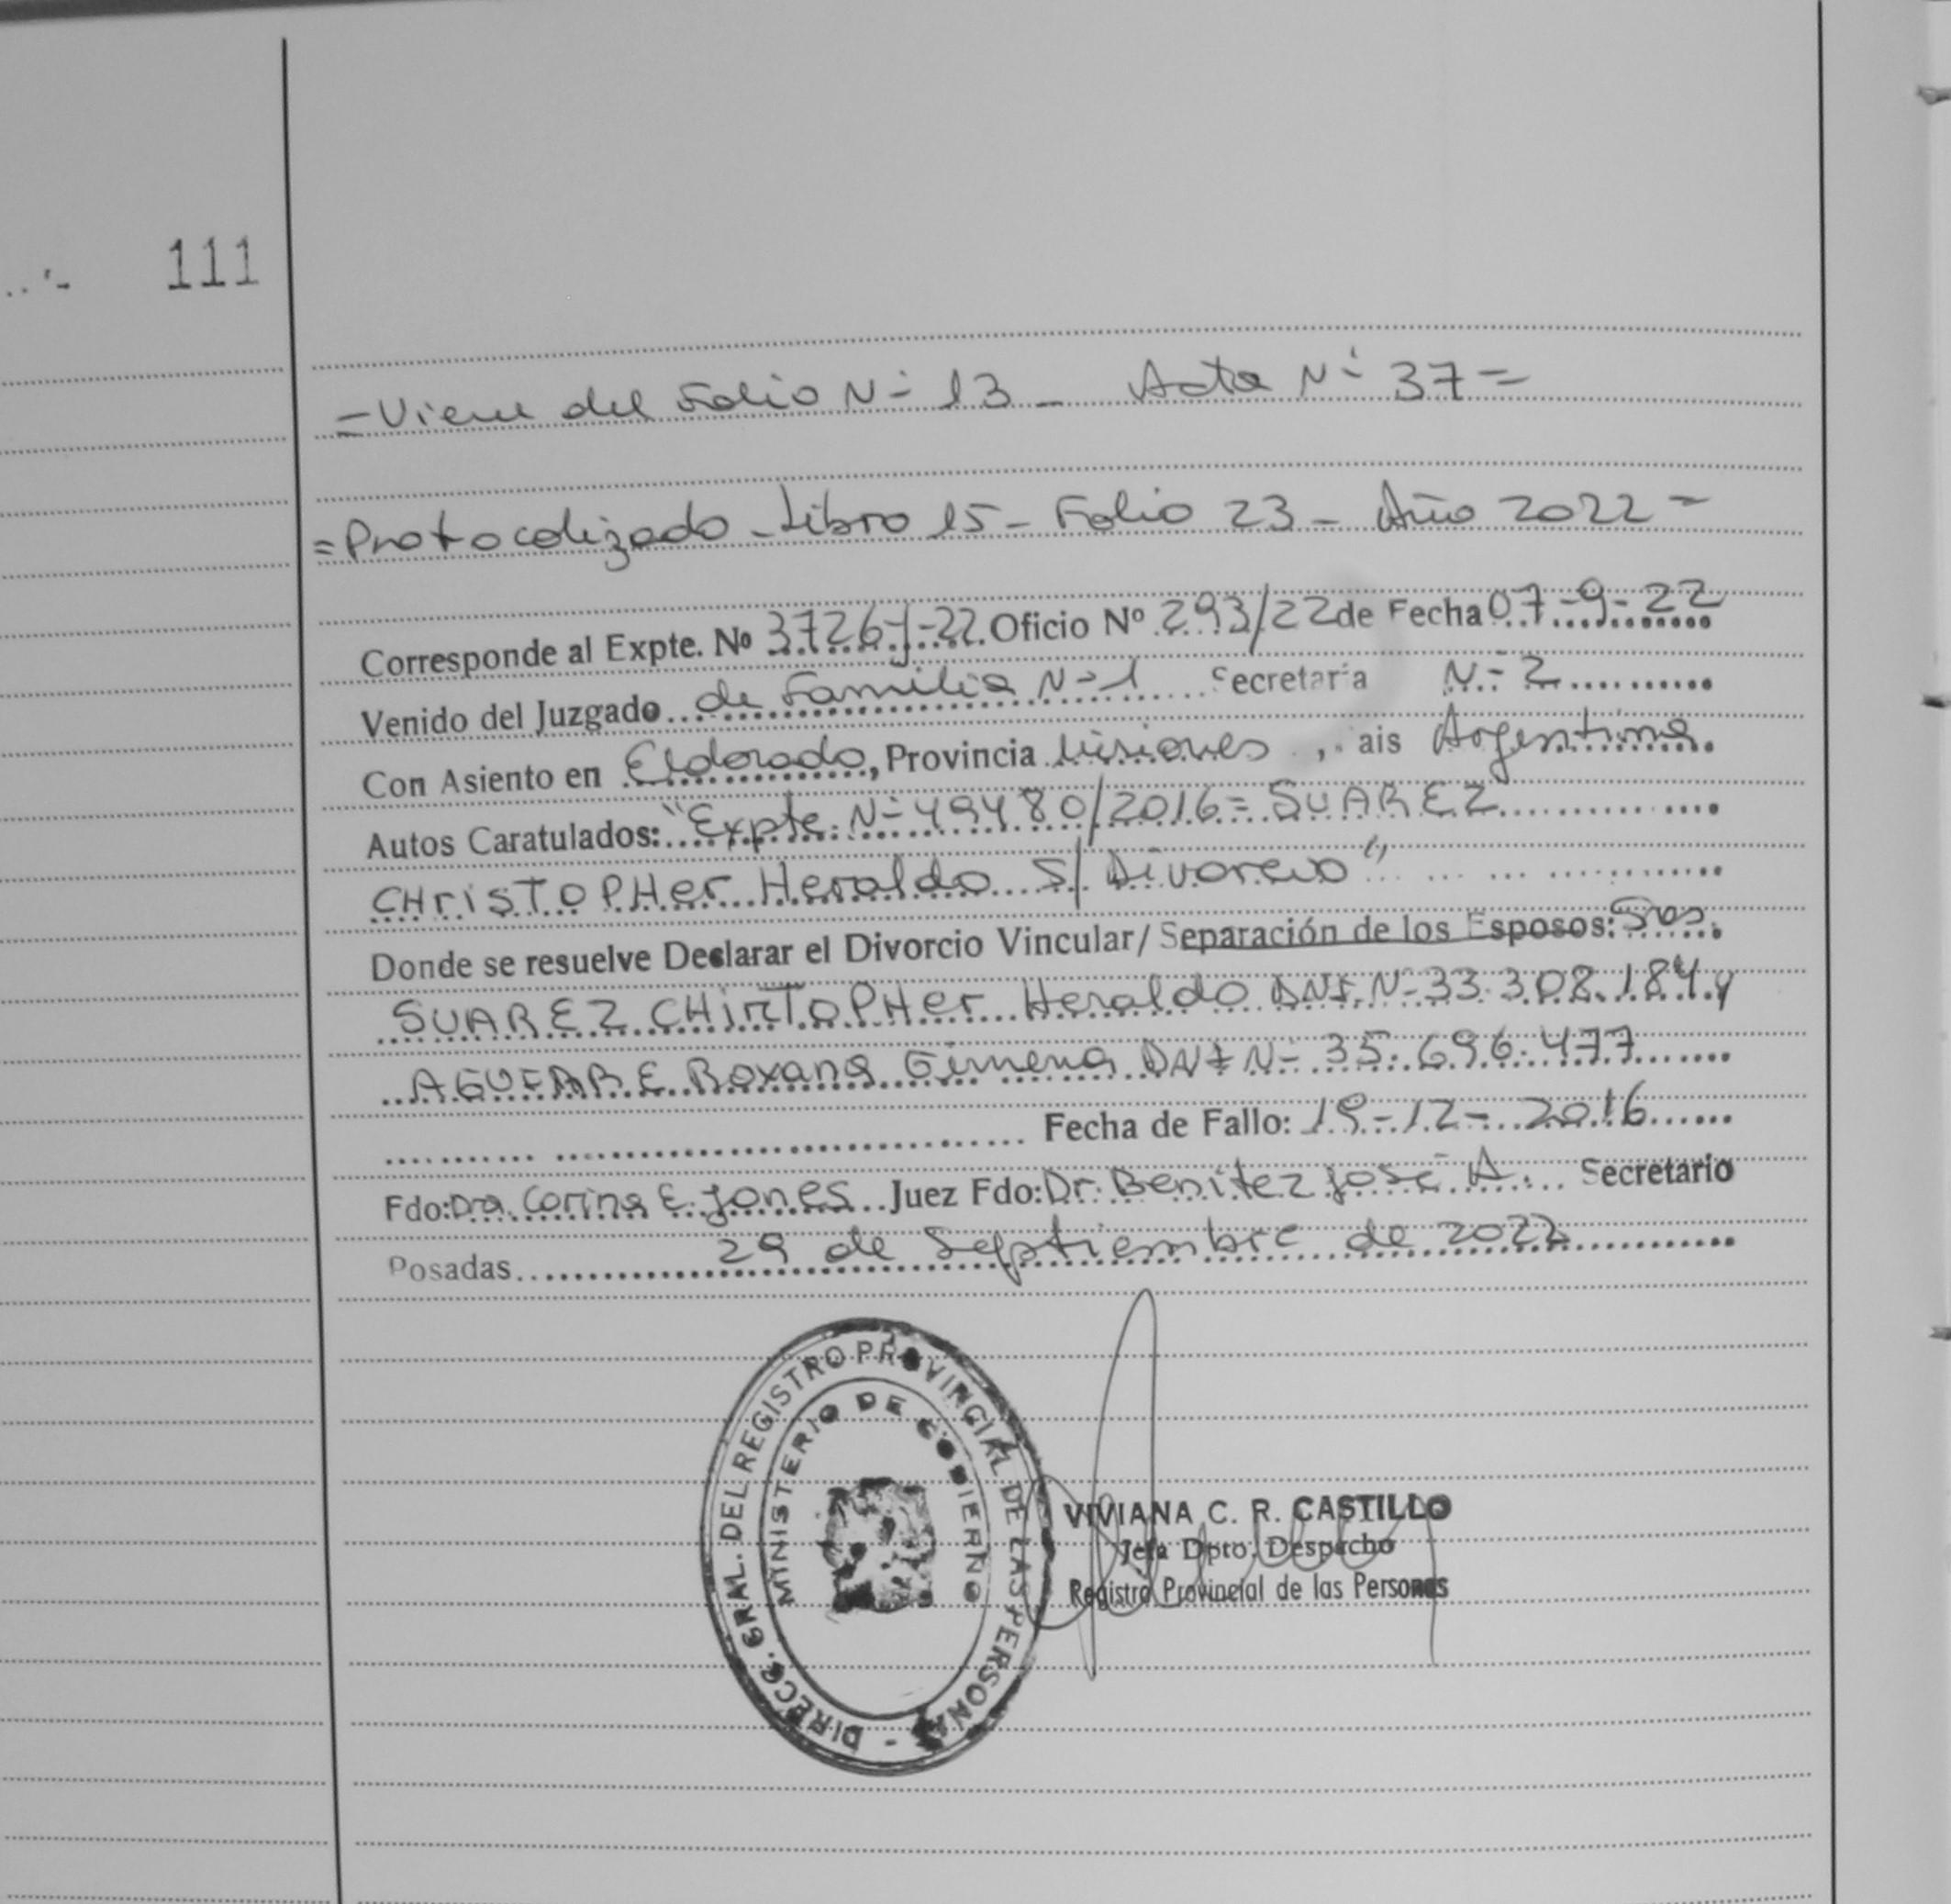 111
= Viene del Folio Nº 13 - Acta Nº 37 =
= Protocolizado - Libro 15 - Folio 23 - Año 2022 =
Corresponde al Expte. Nº 3726-J-22. Oficio Nº 293/22 de Fecha 07-9-22
Venido del Juzgado de Familia Nº 1 Secretaría Nº 2
Con Asiento en Eldorado, Provincia Misiones, ais Argentina.
Autos Caratulados: "Expte. Nº 49480/2016 = SUAREZ
CHrisTOPHer Heraldo S/ Divorcio"
Donde se resuelve Declarar el Divorcio Vincular/ Separación de los Esposos: Sres.
SUAREZ CHirTOPHer Heraldo DNI. Nº 33.308.184 y
Roxana Gimena DNI Nº 35.696.477
Fecha de Fallo: 19-12-2016
Fdo: Dra. Corina E. Jones Juez Fdo: Dr. Benitez José A. Secretario
Posadas 29 de Septiembre de 2022
DIRECC. GRAL. DEL REGISTRO PROVINCIAL DE LAS PERSONAS -
MINISTERIO DE GOBIERNO
VIVIANA C. R. CASTILLO
Jefa Dpto. Despacho
Registro Provincial de las Personas